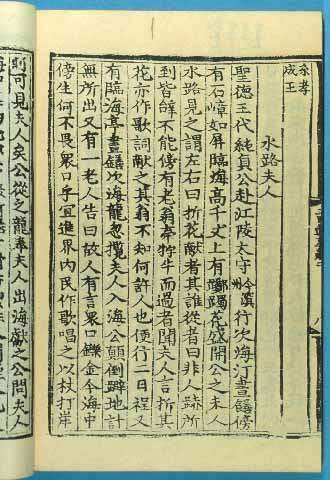 孝
成王
水路夫人
聖德王代純貞公赴江陵太守今溟州行次海汀晝饍傍
有石嶂如屏臨海高千丈上有躑躅花盛開公之夫人
水路見之謂左右曰折花獻者其誰從者曰非人跡所
到皆辭不能傍有老翁牽牸牛而過者聞夫人言折其
花亦作歌詞獻之其翁不知何許人也便行二日程又
有臨海亭晝饍次海龍忽攬夫人入海公顚倒躃地計
無所出又有一老人告曰故人有言衆口鑠金今海中
傍生何不畏衆口乎宜進界內民作歌唱之以杖打岸
則可見夫人矣公從之龍奉夫人出海獻之公問夫人